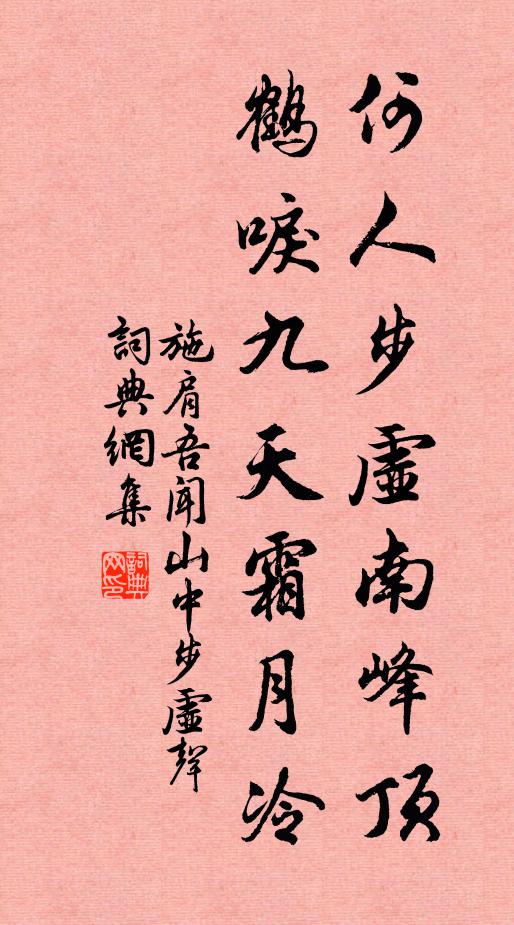 何人步虛南峰頂
鶴唳九天霜月冷
施肩吾聞山中步虛聲
詞典網集
詞典网印